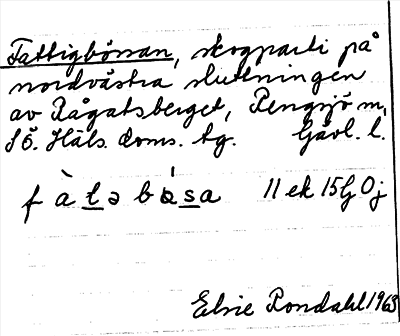 Fattigbössan, skogsparti på
nordvästra sluttningen
av Rågatsberget, Rengsjö sn,
Sö. Häls. doms. tg. Gävl. l.
f à t ə b ó s a 11 ek 15G 0j
Elsie Rondahl 1963